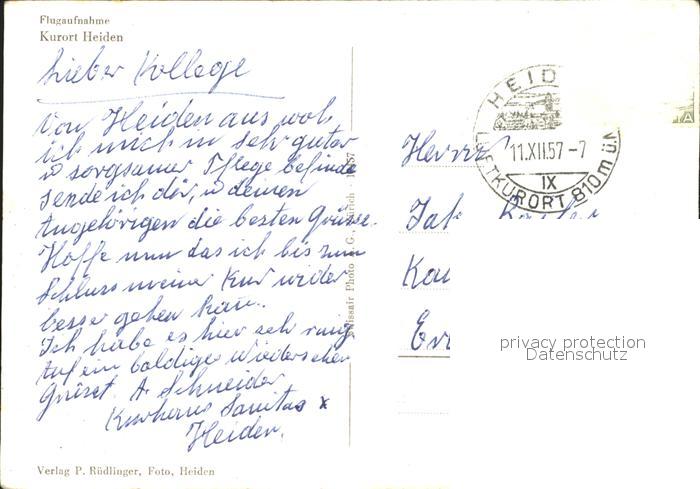 Flugaufnahme
Kurort Heiden
Lieber Kollege
Von Heiden aus woh
ich mich in sehr guter
u sorgsamer Pflege befinde
sende ich dir, u deinen
Angehörigen die besten Grüsse.
Hoffe nun das ich bis zum
Schluss meiner Kur wider
besser gehen kan.
Ich habe es hier sehr ruig
Auf ein baldiges Wiedersehen
Grüsst. A. Schneider
Kurhaus Sanitas x
Heiden.
Verlag P. Rüdlinger, Foto, Heiden
Swissair Photo A.G., Zürich
HEID
11.XII.57-7
IX
LUFTKURORT 810 m ü.M
Herrn
Jak
Kau
privacy protection
Datenschutz